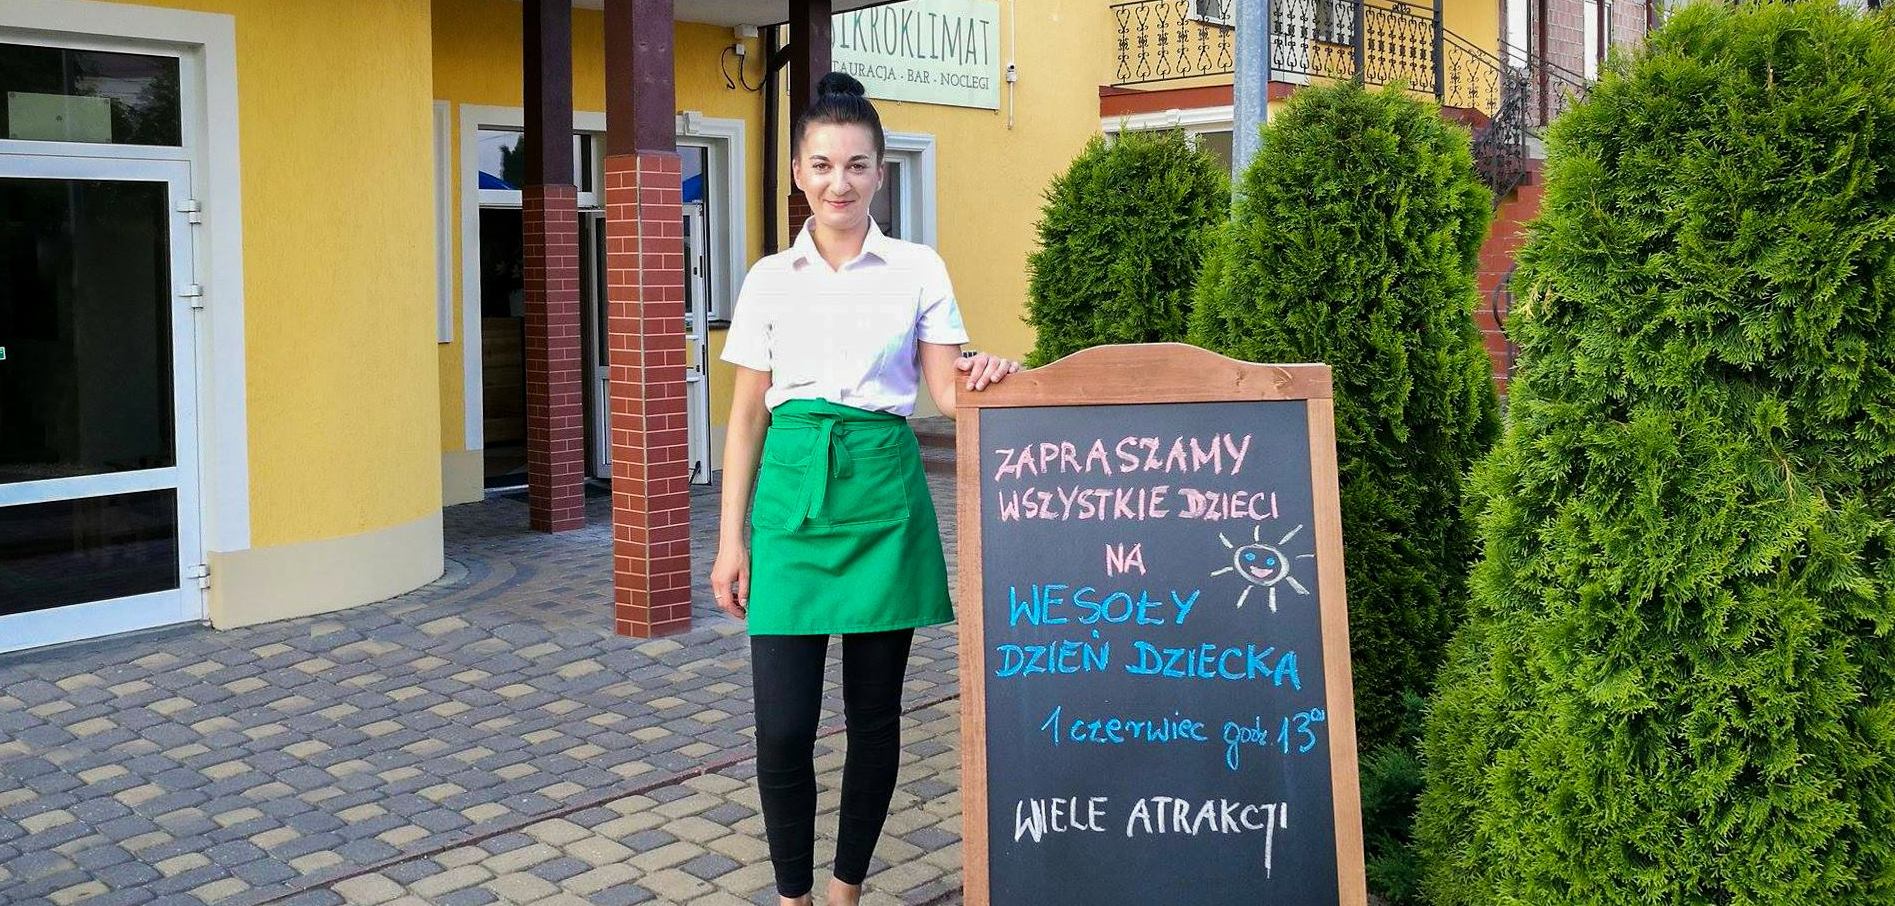 MIKROKLIMAT
BAR - NOCLEGI
ZAPRASZAMY
WSZYSTKIE DZIECI
NA
WESOŁY
DZIEŃ DZIECKA
1 czerwiec godz. 13⁰⁰
WIELE ATRAKCJI